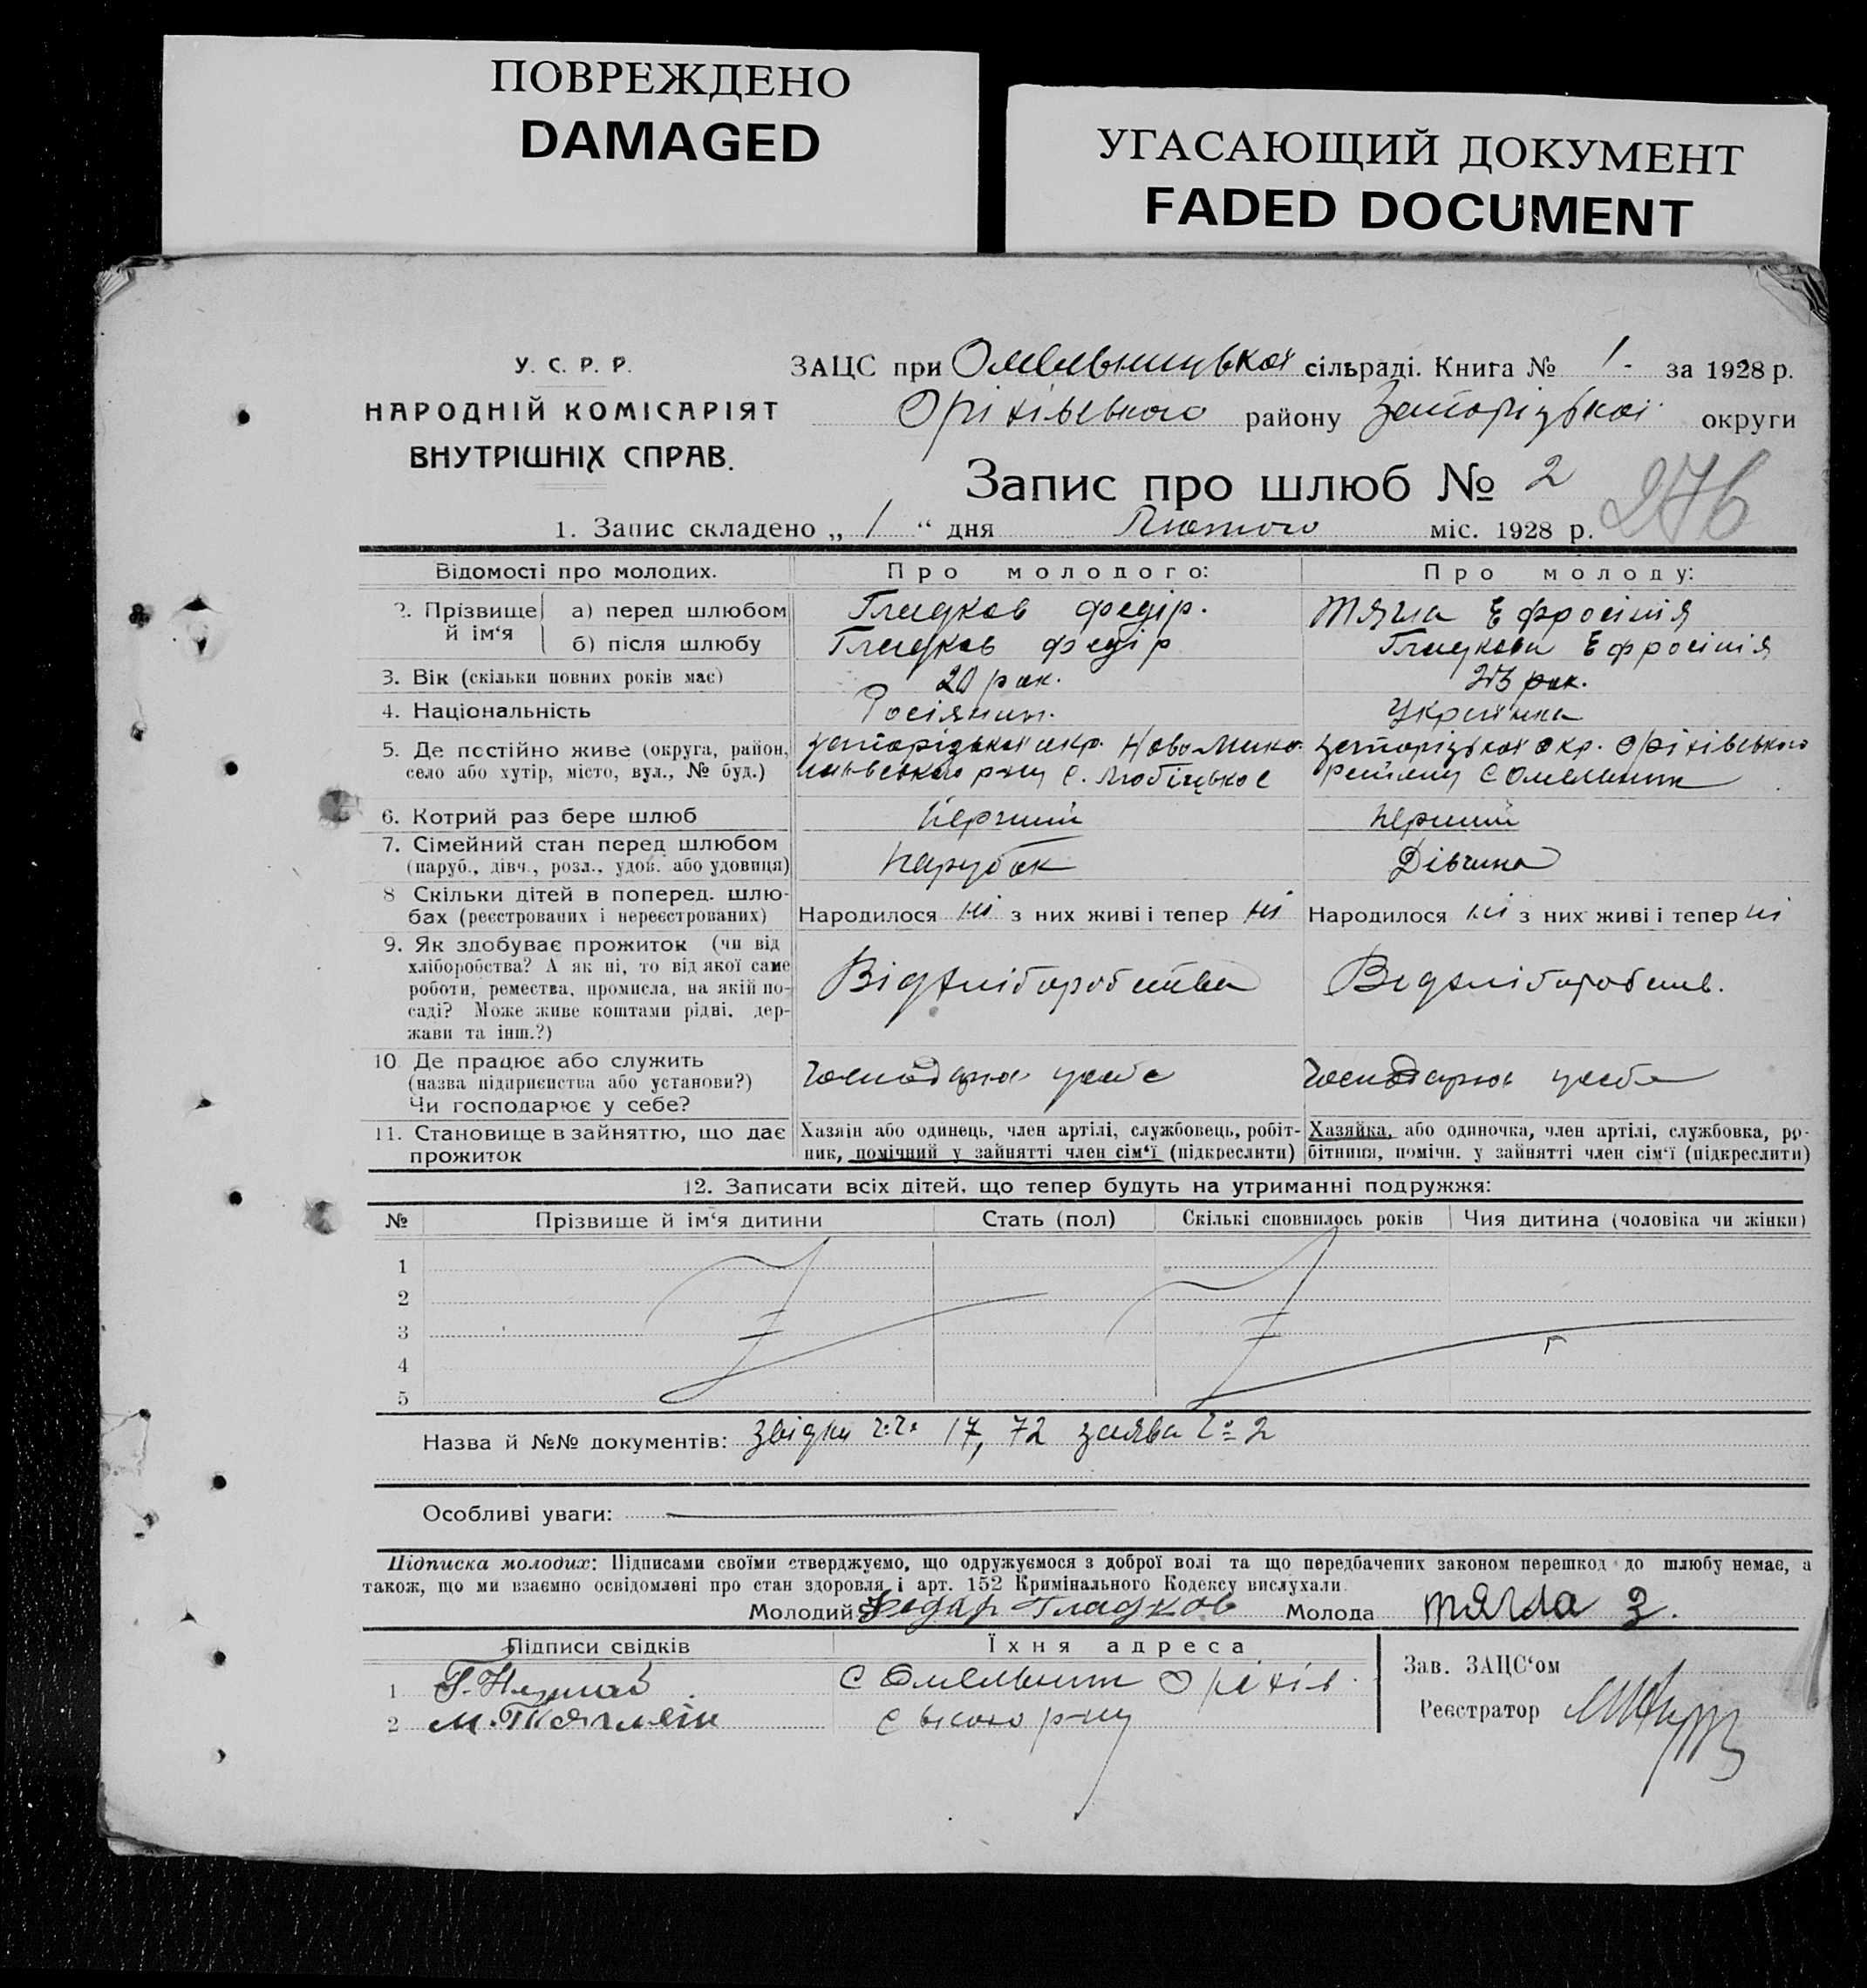 ПОВРЕЖДЕНО
DAMAGED
УГАСАЮЩИЙ ДОКУМЕНТ
FADED DOCUMENT
У. С. Р. Р.
НАРОДНІЙ КОМІСАРІЯТ
ВНУТРІШНІХ СПРАВ.
ЗАЦС при Омельницькой сільраді. Книга № 1 - за 1928 р.
Оріхівського району Запорізької округи
Запис про шлюб № 2
276
1. Запис складено „ 1 “ дня Лютого міс. 1928 р.
Відомості про молодих. Про молодого: Про молоду:
2. Прізвище й ім‘я а) перед шлюбом Гладков Федір. Тягла Ефросінія
б) після шлюбу Гладков Федір Гладкова Ефросінія
3. Вік (скільки повних років має) 20 рок. рок.
4. Національність Росіянин. Українка
5. Де постійно живе (округа, район, Запорізькой окр. Ново-Мико- Запорізькой окр. Оріхівського
село або хутір, місто, вул., № буд.) р-ну с. Любіцькое району с Омельник
6. Котрий раз бере шлюб Перший перший
7. Сімейний стан перед шлюбом
(паруб., дівч., розл., удов. або удовиця) Парубок Дівчина
8 Скільки дітей в поперед. шлю-
бах (реєстрованих і нереєстрованих) Народилося ні з них живі і тепер ні Народилося ні з них живі і тепер ні
9. Як здобуває прожиток (чи від
хліборобства? А як ні, то від якої саме
роботи, ремества, промисла, на якій по-
саді? Може живе коштами рідні, дер-
жави та інш.?)
Від хліборобства Від хлібороб ств.
10 Де працює або служить
(назва підприємства або установи?)
Чи господарює у себе?
Господарює у себе Господарює у себе
11. Становище в зайняттю, що дає
прожиток
Хазяїн або одинець, член артілі, службовець, робіт-
ник, помічний у зайнятті член сім‘ї (підкреслити)
Хазяйка, або одиночка, член артілі, службовка, ро-
бітниця, помічн. у зайнятті член сім‘ї (підкреслити)
12. Записати всіх дітей, що тепер будуть на утриманні подружжя:
№ Прізвище й ім‘я дитини Стать (пол) Скількі сповнилось років Чия дитина (чоловіка чи жінки)
1
2
3
4
5
Назва й №№ документів: звідки 17, 72 заява № 2
Особливі уваги:
Підписка молодих: Підписами своїми стверджуємо, що одружуємося з доброї волі та що передбачених законом перешкод до шлюбу немає, а
також, що ми взаємно освідомлені про стан здоровля і арт. 152 Кримінального Кодексу вислухали.
Молодий Гладков Молода тягла
Підписи свідків Їхня адреса
1 с Омельник Оріхів
2 ського р-ну
Зав. ЗАЦС‘ом
Реєстратор